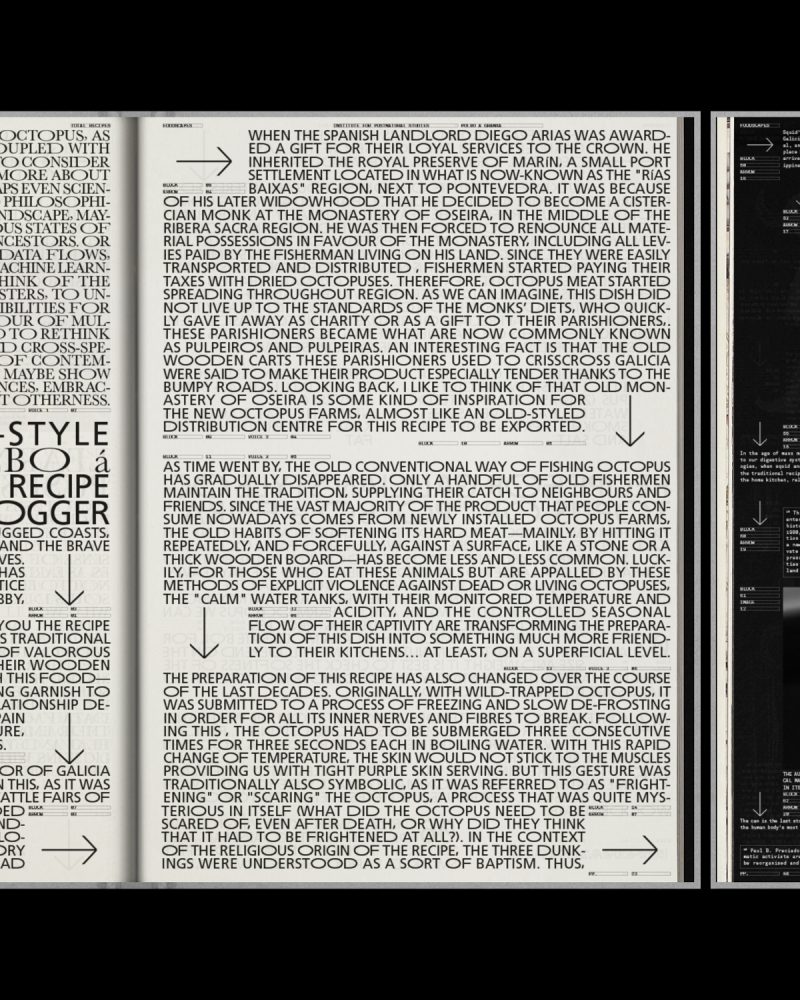 TOTAL RECIPES
OCTOPUS, AS
OUPLED WITH
TO CONSIDER
MORE ABOUT
APS EVEN SCIEN-
PHILOSOPHI-
NDSCAPE, MAY-
OUS STATES OF
NCESTORS, OR
DATA FLOWS,
ACHINE LEARN-
HINK OF THE
STERS, TO UN-
IBILITIES FOR
OUR OF MUL-
D TO RETHINK
D CROSS-SPE-
OF CONTEM-
MAYBE SHOW
NCES, EMBRAC-
T OTHERNESS.
-STYLE
BO á
RECIPE
OGGER
GGED COASTS,
AND THE BRAVE
VES.
HAS
TICE
BBY,
YOU THE RECIPE
S TRADITIONAL
OF VALOROUS
HEIR WOODEN
H THIS FOOD—
NG GARNISH TO
ATIONSHIP DE-
PAIN
URE,
S.
OR OF GALICIA
N THIS, AS IT WAS
ATTLE FAIRS OF
ED
ND-
LO-
ORY
AD
FOODSCAPES
INSTITUTE FOR POSTNATURAL STUDIES
WHEN THE SPANISH LANDLORD DIEGO ARIAS WAS AWARD-
ED A GIFT FOR THEIR LOYAL SERVICES TO THE CROWN. HE
INHERITED THE ROYAL PRESERVE OF MARíN, A SMALL PORT
SETTLEMENT LOCATED IN WHAT IS NOW-KNOWN AS THE "RíAS
BAIXAS" REGION, NEXT TO PONTEVEDRA. IT WAS BECAUSE
OF HIS LATER WIDOWHOOD THAT HE DECIDED TO BECOME A CISTER-
CIAN MONK AT THE MONASTERY OF OSEIRA, IN THE MIDDLE OF THE
RIBERA SACRA REGION. HE WAS THEN FORCED TO RENOUNCE ALL MATE-
RIAL POSSESSIONS IN FAVOUR OF THE MONASTERY, INCLUDING ALL LEV-
IES PAID BY THE FISHERMAN LIVING ON HIS LAND. SINCE THEY WERE EASILY
TRANSPORTED AND DISTRIBUTED , FISHERMEN STARTED PAYING THEIR
TAXES WITH DRIED OCTOPUSES. THEREFORE, OCTOPUS MEAT STARTED
SPREADING THROUGHOUT REGION. AS WE CAN IMAGINE, THIS DISH DID
NOT LIVE UP TO THE STANDARDS OF THE MONKS' DIETS, WHO QUICK-
LY GAVE IT AWAY AS CHARITY OR AS A GIFT TO T THEIR PARISHIONERS,.
THESE PARISHIONERS BECAME WHAT ARE NOW COMMONLY KNOWN
AS PULPEIROS AND PULPEIRAS. AN INTERESTING FACT IS THAT THE OLD
WOODEN CARTS THESE PARISHIONERS USED TO CRISSCROSS GALICIA
WERE SAID TO MAKE THEIR PRODUCT ESPECIALLY TENDER THANKS TO THE
BUMPY ROADS. LOOKING BACK, I LIKE TO THINK OF THAT OLD MON-
ASTERY OF OSEIRA IS SOME KIND OF INSPIRATION FOR
THE NEW OCTOPUS FARMS, ALMOST LIKE AN OLD-STYLED
DISTRIBUTION CENTRE FOR THIS RECIPE TO BE EXPORTED.
AS TIME WENT BY, THE OLD CONVENTIONAL WAY OF FISHING OCTOPUS
HAS GRADUALLY DISAPPEARED. ONLY A HANDFUL OF OLD FISHERMEN
MAINTAIN THE TRADITION, SUPPLYING THEIR CATCH TO NEIGHBOURS AND
FRIENDS. SINCE THE VAST MAJORITY OF THE PRODUCT THAT PEOPLE CON-
SUME NOWADAYS COMES FROM NEWLY INSTALLED OCTOPUS FARMS,
THE OLD HABITS OF SOFTENING ITS HARD MEAT—MAINLY, BY HITTING IT
REPEATEDLY, AND FORCEFULLY, AGAINST A SURFACE, LIKE A STONE OR A
THICK WOODEN BOARD—HAS BECOME LESS AND LESS COMMON. LUCK-
ILY, FOR THOSE WHO EAT THESE ANIMALS BUT ARE APPALLED BY THESE
METHODS OF EXPLICIT VIOLENCE AGAINST DEAD OR LIVING OCTOPUSES,
THE "CALM" WATER TANKS, WITH THEIR MONITORED TEMPERATURE AND
ACIDITY, AND THE CONTROLLED SEASONAL
FLOW OF THEIR CAPTIVITY ARE TRANSFORMING THE PREPARA-
TION OF THIS DISH INTO SOMETHING MUCH MORE FRIEND-
LY TO THEIR KITCHENS... AT LEAST, ON A SUPERFICIAL LEVEL.
THE PREPARATION OF THIS RECIPE HAS ALSO CHANGED OVER THE COURSE
OF THE LAST DECADES. ORIGINALLY, WITH WILD-TRAPPED OCTOPUS, IT
WAS SUBMITTED TO A PROCESS OF FREEZING AND SLOW DE-FROSTING
IN ORDER FOR ALL ITS INNER NERVES AND FIBRES TO BREAK. FOLLOW-
ING THIS , THE OCTOPUS HAD TO BE SUBMERGED THREE CONSECUTIVE
TIMES FOR THREE SECONDS EACH IN BOILING WATER. WITH THIS RAPID
CHANGE OF TEMPERATURE, THE SKIN WOULD NOT STICK TO THE MUSCLES
PROVIDING US WITH TIGHT PURPLE SKIN SERVING. BUT THIS GESTURE WAS
TRADITIONALLY ALSO SYMBOLIC, AS IT WAS REFERRED TO AS "FRIGHT-
ENING" OR "SCARING" THE OCTOPUS, A PROCESS THAT WAS QUITE MYS-
TERIOUS IN ITSELF (WHAT DID THE OCTOPUS NEED TO BE
SCARED OF, EVEN AFTER DEATH, OR WHY DID THEY THINK
THAT IT HAD TO BE FRIGHTENED AT ALL?). IN THE CONTEXT
OF THE RELIGIOUS ORIGIN OF THE RECIPE, THE THREE DUNK-
INGS WERE UNDERSTOOD AS A SORT OF BAPTISM. THUS,
FOODSCAPES
In the age of mass m
to our digestive syst
ogies, when squid an
the traditional recip
the home kitchen, rel
The can is the last st
the human body's most